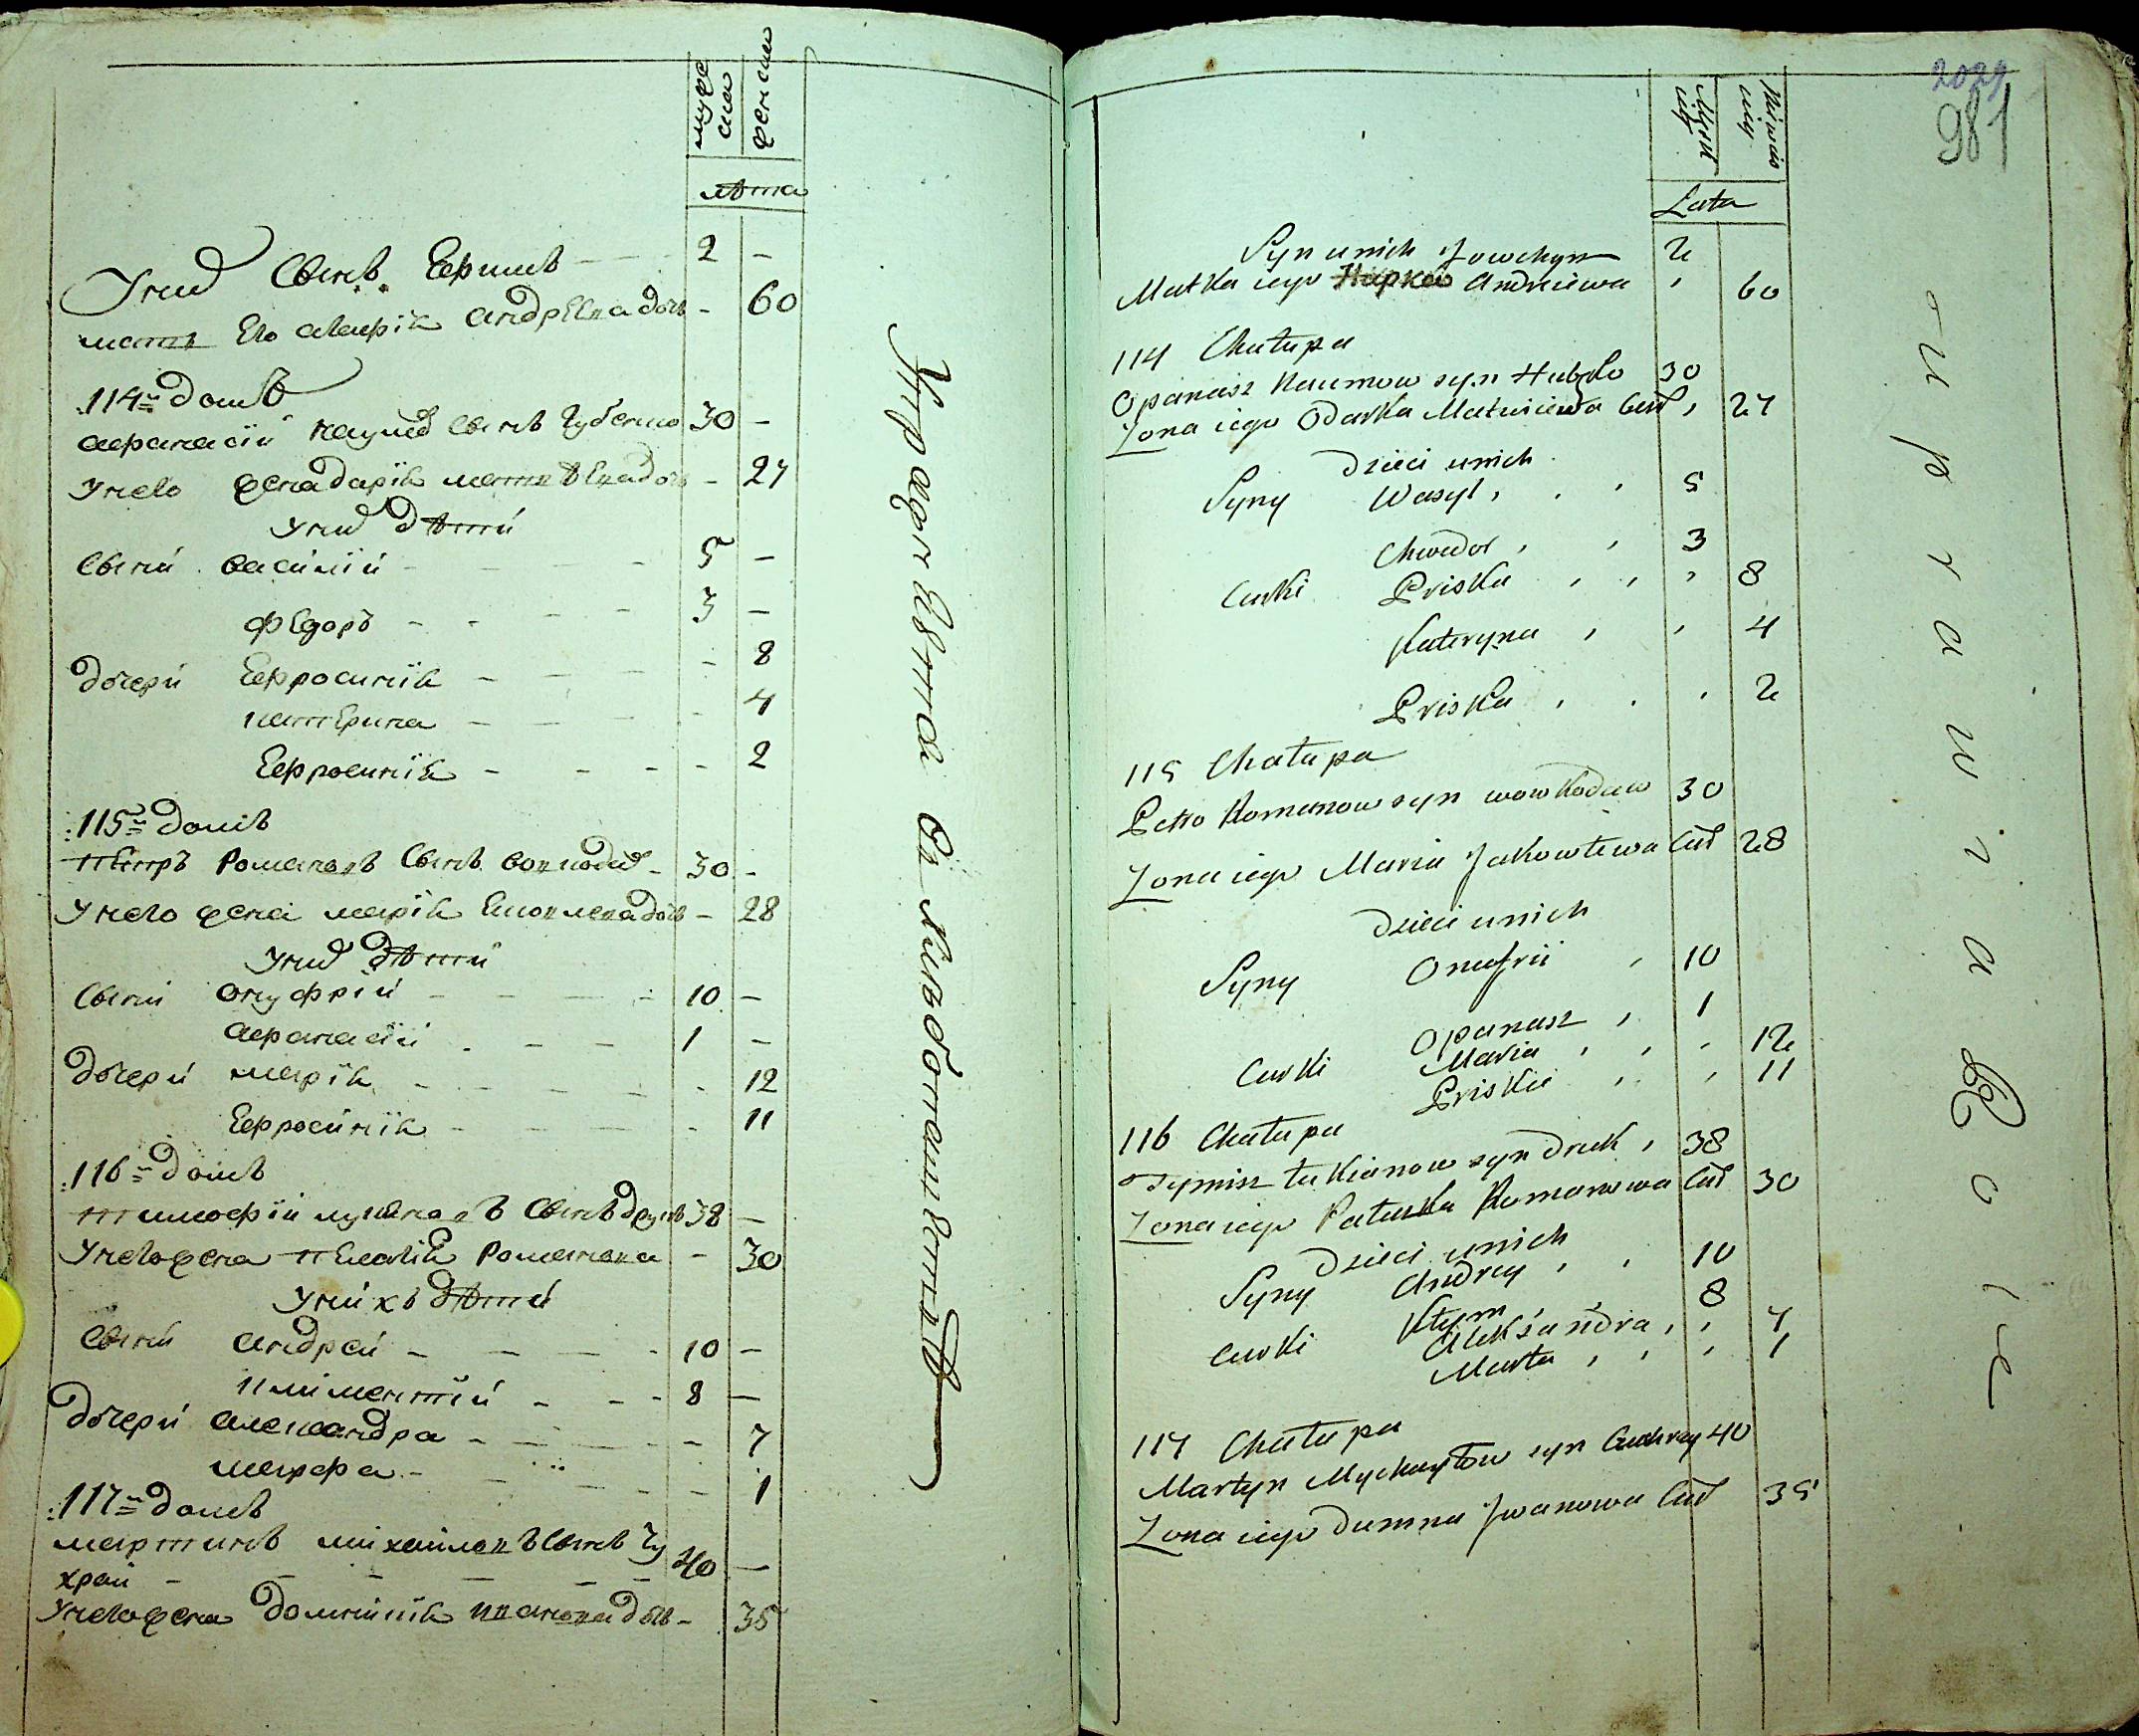 муже
ска
женска
лѣта
У нид Сынъ Ефимъ - - - 2 -
мать Его Марія Андреева дочь - 60
114= домъ
Афанасій Наумов Сынъ Губенко 30 -
У него жена Дарія Матвѣева дочь - 27
У нид дѣти
Сыни Василій - - - 5 -
Федоръ - - - 3 -
дочери Ефросинія - - - 8
Катерина - - - 4
Ефросинія - - - 2
115= домъ
Петръ Романовъ Сынъ Вовкодав - 30 -
У него жена Марія Яковлева дочь - 28
У нид дѣти
Сыни Онуфрій - - - 10 -
Афанасій - - - 1 -
дочери Марія - - - 12
Ефросинія - - - 11
116= домъ
Тимофій Лукяновъ Сынъ Друкъ 38 -
У него жена Пелагія Романова - 30
У нихъ дѣти
Сыни Андрей - - - 10 -
Климентій - - - 8 -
дочери Александра - - - 7
Марфа - - - 1
117= домъ
Мартинъ Михайловъ Сынъ Чу
храй - - - 40 -
У него жена Домникія Иванова дочь - 35
2029
981
Lata
Syn u nich Jowchym 2
Matka iego Andreiewa 60
114 Chałupa
Opanasz Naumow syn Hubko 30
Zona iego Odarka Matwieiewa Cur 27
Dzieci u nich
Syny Wasyl , . , 5
Chwedor , , 3
Curki Priska , , , 8
Kateryna , , 4
Priska , . , 2
115 Chałupa
Petro Romanow syn Wowkodaw 30
Zona iego Maria Jakowlewa Cur 28
Dzieci u nich
Syny Onufrii , 10
Opanasz , 1
Curki Maria , , , 12
Priska , , 11
116 Chałupa
Tymisz Łukianow syn Druk , 38
Zona iego Pałaszka Romanowa Cur 30
Dzieci u nich
Syny Andrey , , 10
Kłym , , 8
Curki Aleksandra , , 7
Marta , , , 1
117 Chałupa
Martyn Mychayłow syn Czuhray 40
Zona iego Dumna Jwanowa Cur 35